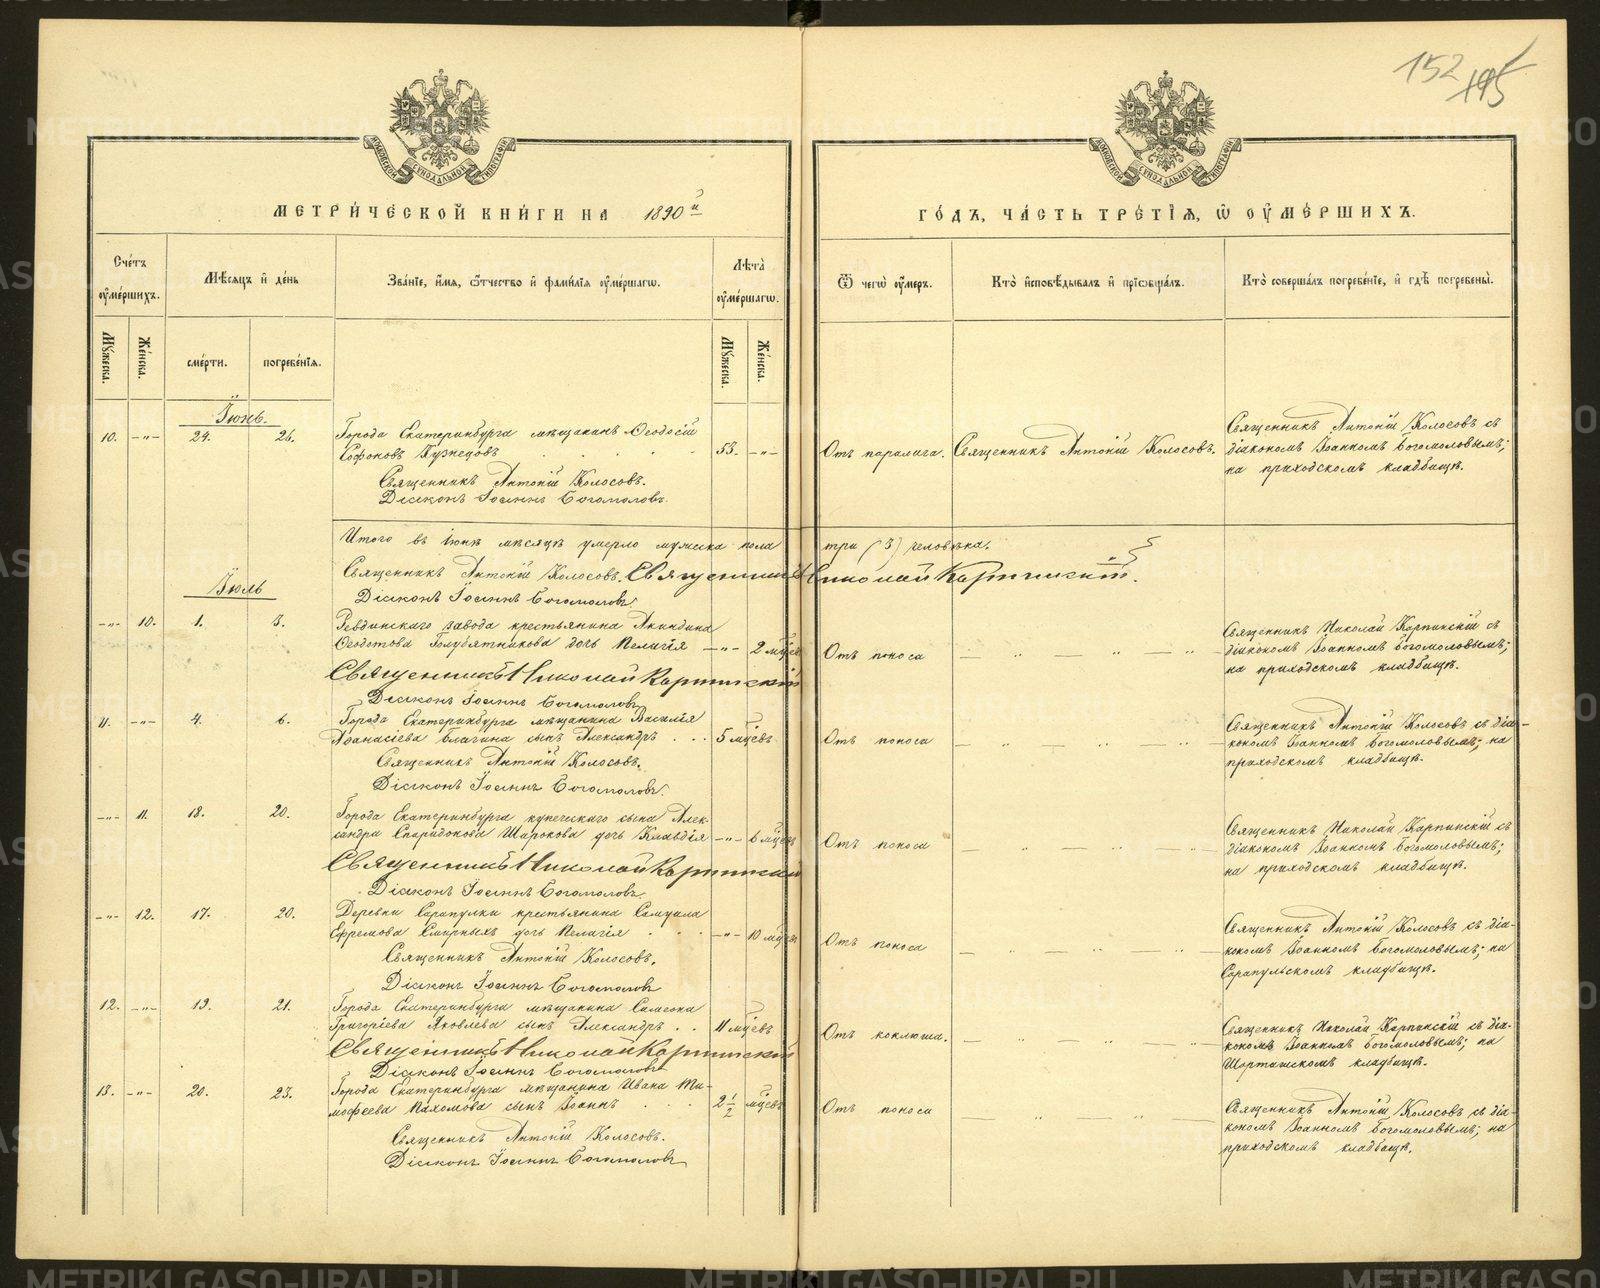 152 195
МЕТРИЧЕСКОЙ КНИГИ НА 1890 й
ГОДЪ, ЧАСТЬ ТРЕТІЯ, Ѿ ОУМЕРШИХЪ.
Счетъ оумершихъ.
Мѣсяцъ и день
Званіе, имя, ѿчество и фамилія оумершагѡ.
Лѣта оумершагѡ.
Ѿ чегѡ оумеръ.
Кто исповѣдывалъ и пріобщалъ.
Кто совершалъ погребеніе, и гдѣ погребены.
Мужеска.
Женска.
смерти.
погребенія.
Мужеска.
Женска.
Іюнь.
10. -"- 24. 26. Города Екатеринбурга мѣщанинъ Ѳеодосій
Софоновъ Кузнецовъ 53. -"- Отъ паралича. Священникъ Антоній Колосовъ.
Священникъ Антоній Колосовъ съ
діакономъ Іоанномъ Богомоловымъ;
на приходскомъ кладбищѣ.
Священникъ Антоній Колосовъ.
Діаконъ Іоаннъ Богомоловъ.
Итого въ іюнѣ мѣсяцѣ умерло мужеска пола три (3) человѣка.
Священникъ Антоній Колосовъ. Священникъ Николай Карпинскій.
Діаконъ Іоаннъ Богомоловъ.
Іюль
-"- 10. 1. 3. Ревдинскаго завода крестьянина Акиндина
Ѳедотова Голубятникова дочь Пелагія -"- 2 мѣсяц Отъ поноса
Священникъ Николай Карпинскій съ
діакономъ Іоанномъ Богомоловымъ;
на приходскомъ кладбищѣ.
Священникъ Николай Карпинскій
Діаконъ Іоаннъ Богомоловъ
11. -"- 4. 6. Города Екатеринбурга мѣщанина Василія
Аѳанасіева Благина сынъ Александръ 5 мѣсцевъ Отъ поноса
Священникъ Антоній Колосовъ съ діа-
кономъ Іоанномъ Богомоловымъ; на
приходскомъ кладбищѣ.
Священникъ Антоній Колосовъ.
Діаконъ Іоаннъ Богомоловъ.
-"- 11. 18. 20. Города Екатеринбурга купеческаго сына Алек-
сандра Спиридонова Широкова дочь Клавдія -"- 6 мѣсц Отъ поноса
Священникъ Николай Карпинскій съ
діакономъ Іоанномъ Богомоловымъ;
на приходскомъ кладбищѣ.
Священникъ Николай Карпинскій
Діаконъ Іоаннъ Богомоловъ
-"- 12. 17. 20. Деревни Сарапулки крестьянина Самуила
Ефремова Смирныхъ дочь Пелагія -"- 10 мѣсц Отъ поноса
Священникъ Антоній Колосовъ съ діа-
кономъ Іоанномъ Богомоловымъ; на
Сарапульскомъ кладбищѣ.
Священникъ Антоній Колосовъ.
Діаконъ Іоаннъ Богомоловъ
12. -"- 19. 21. Города Екатеринбурга мѣщанина Симеона
Григоріева Яковлева сынъ Александръ 11 мѣсцевъ Отъ коклюша.
Священникъ Николай Карпинскій съ діа-
кономъ Іоанномъ Богомоловымъ; на
Шарташскомъ кладбищѣ.
Священникъ Николай Карпинскій
Діаконъ Іоаннъ Богомоловъ
13. -"- 20. 23. Города Екатеринбурга мѣщанина Ивана Ти-
моѳеева Пахомова сынъ Іоаннъ 2 1/2 мѣсцевъ Отъ поноса
Священникъ Антоній Колосовъ съ діа-
кономъ Іоанномъ Богомоловымъ; на
приходскомъ кладбищѣ.
Священникъ Антоній Колосовъ.
Діаконъ Іоаннъ Богомоловъ
METRIKI.GASO-URAL.RU